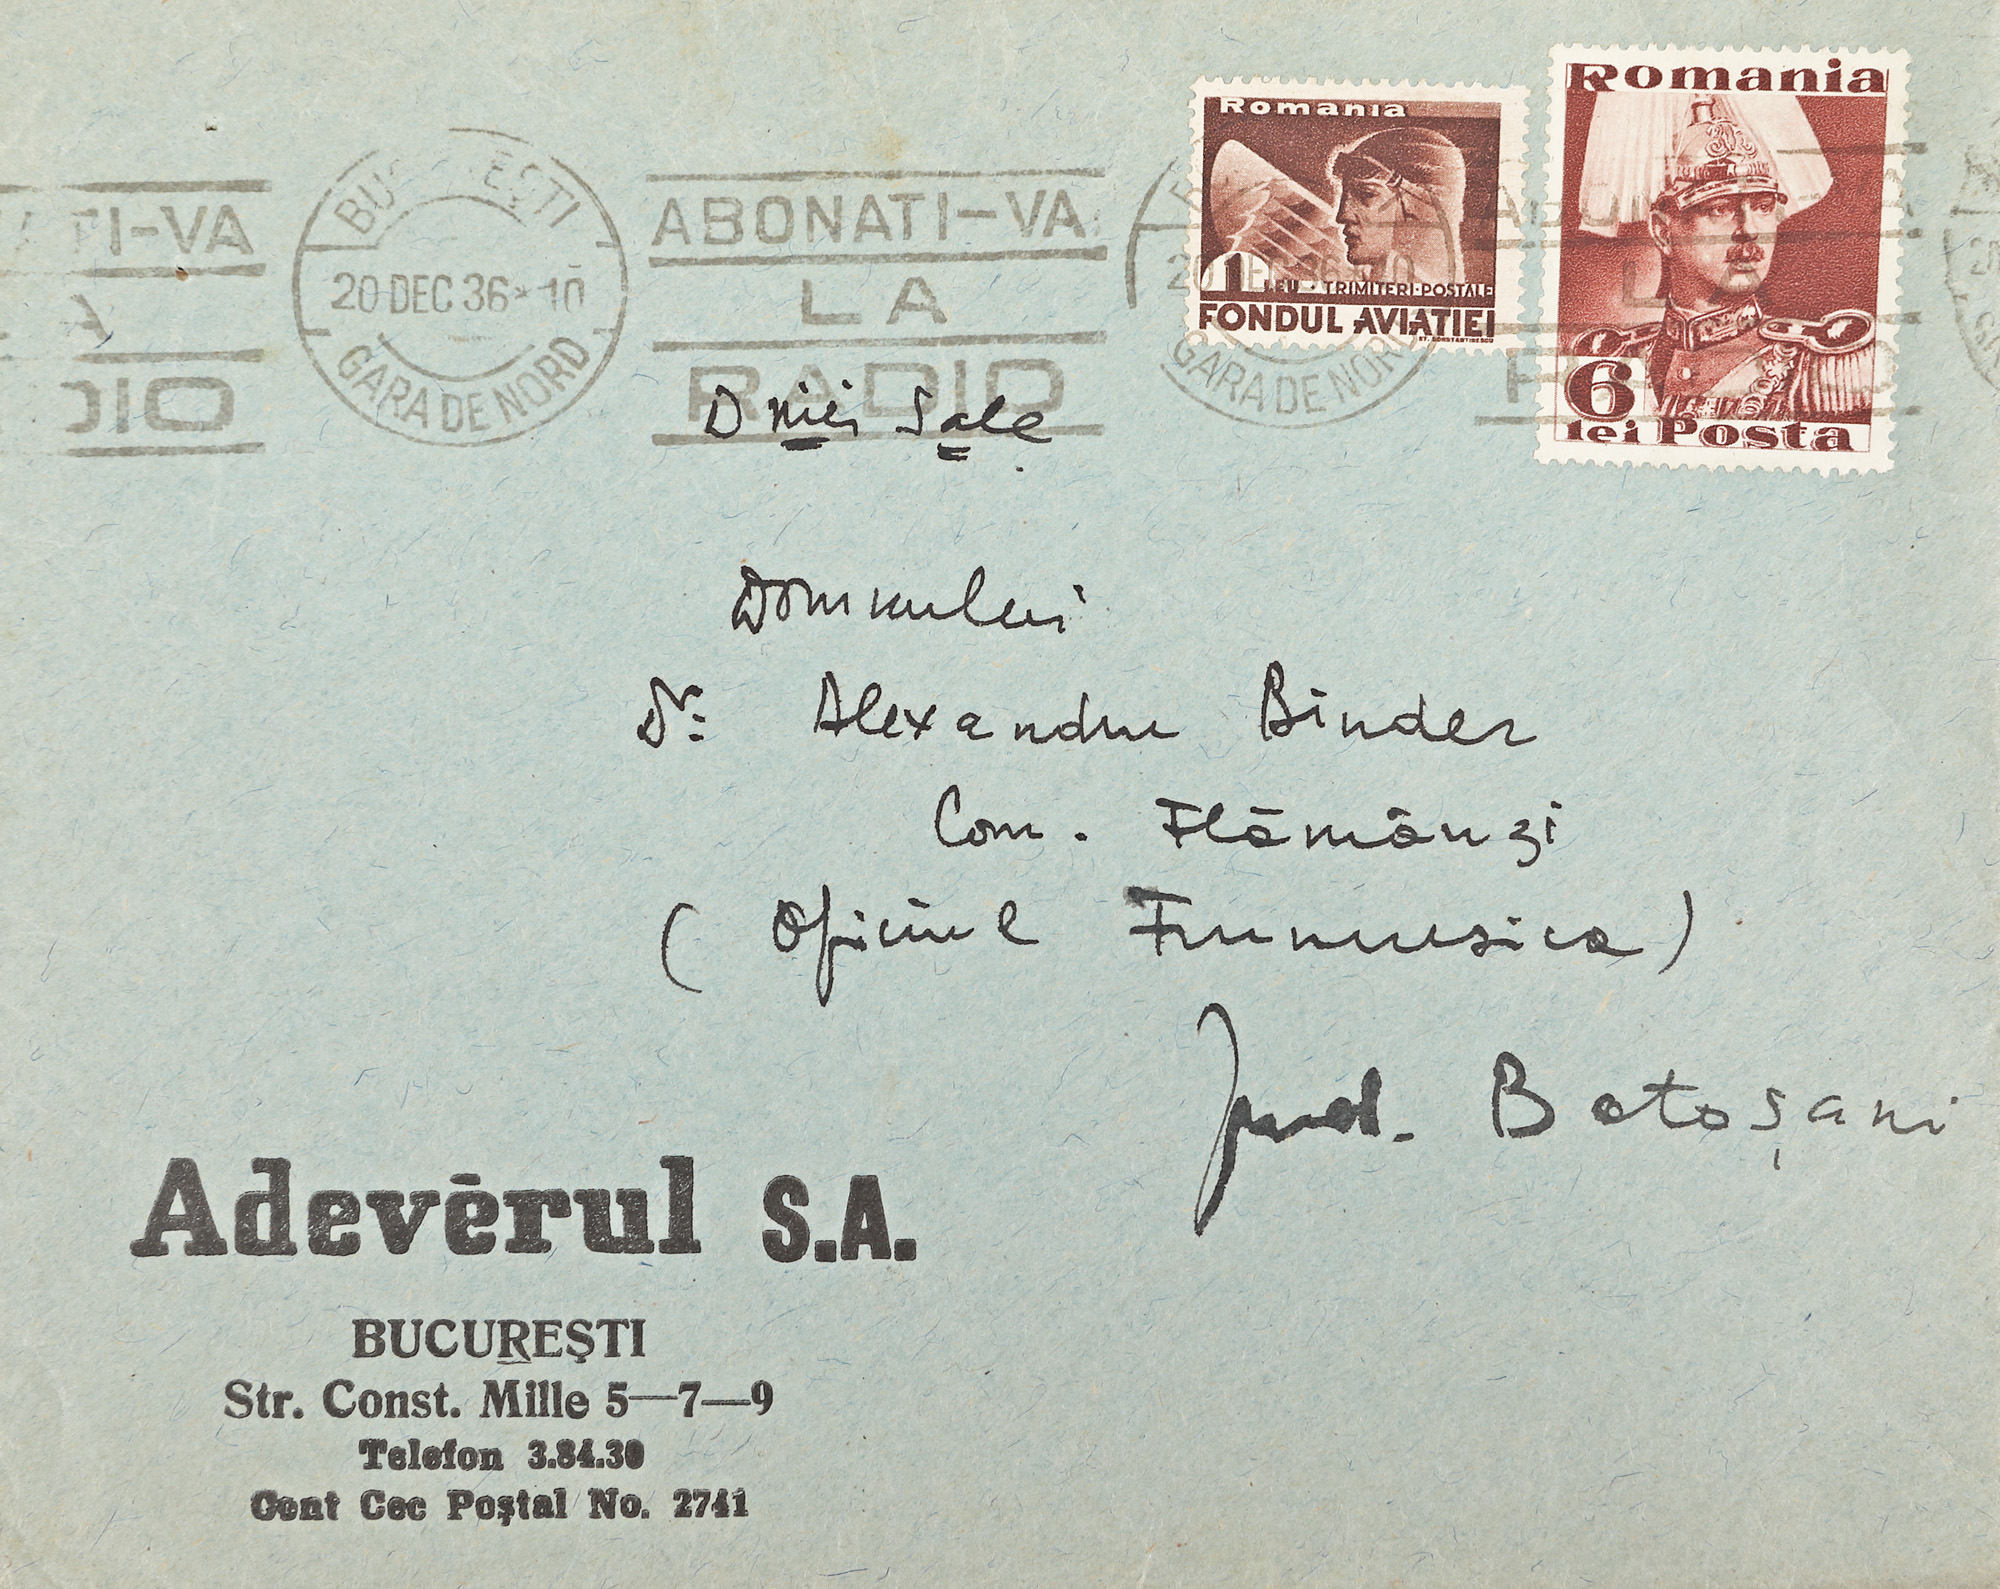 TI-VA
A
DIO
BUC EȘTI
20 DEC 36 * 10
GARA DE NORD
ABONATI-VA
LA
RADIO
Romania
1 LEU · TRIMITERI·POSTALE
FONDUL AVIATIEI
ST. CONSTANTINESCU
20 DEC 36 * 10
GARA DE NORD
Romania
6
lei Posta
Dniei Sale
Domnului
Dr: Alexandru Binder
Com. Flămânzi
(Oficiul Frumusica)
Jud. Botoșani
Adevĕrul S.A.
BUCUREȘTI
Str. Const. Mille 5—7—9
Telefon 3.84.30
Cont Cec Poștal No. 2741